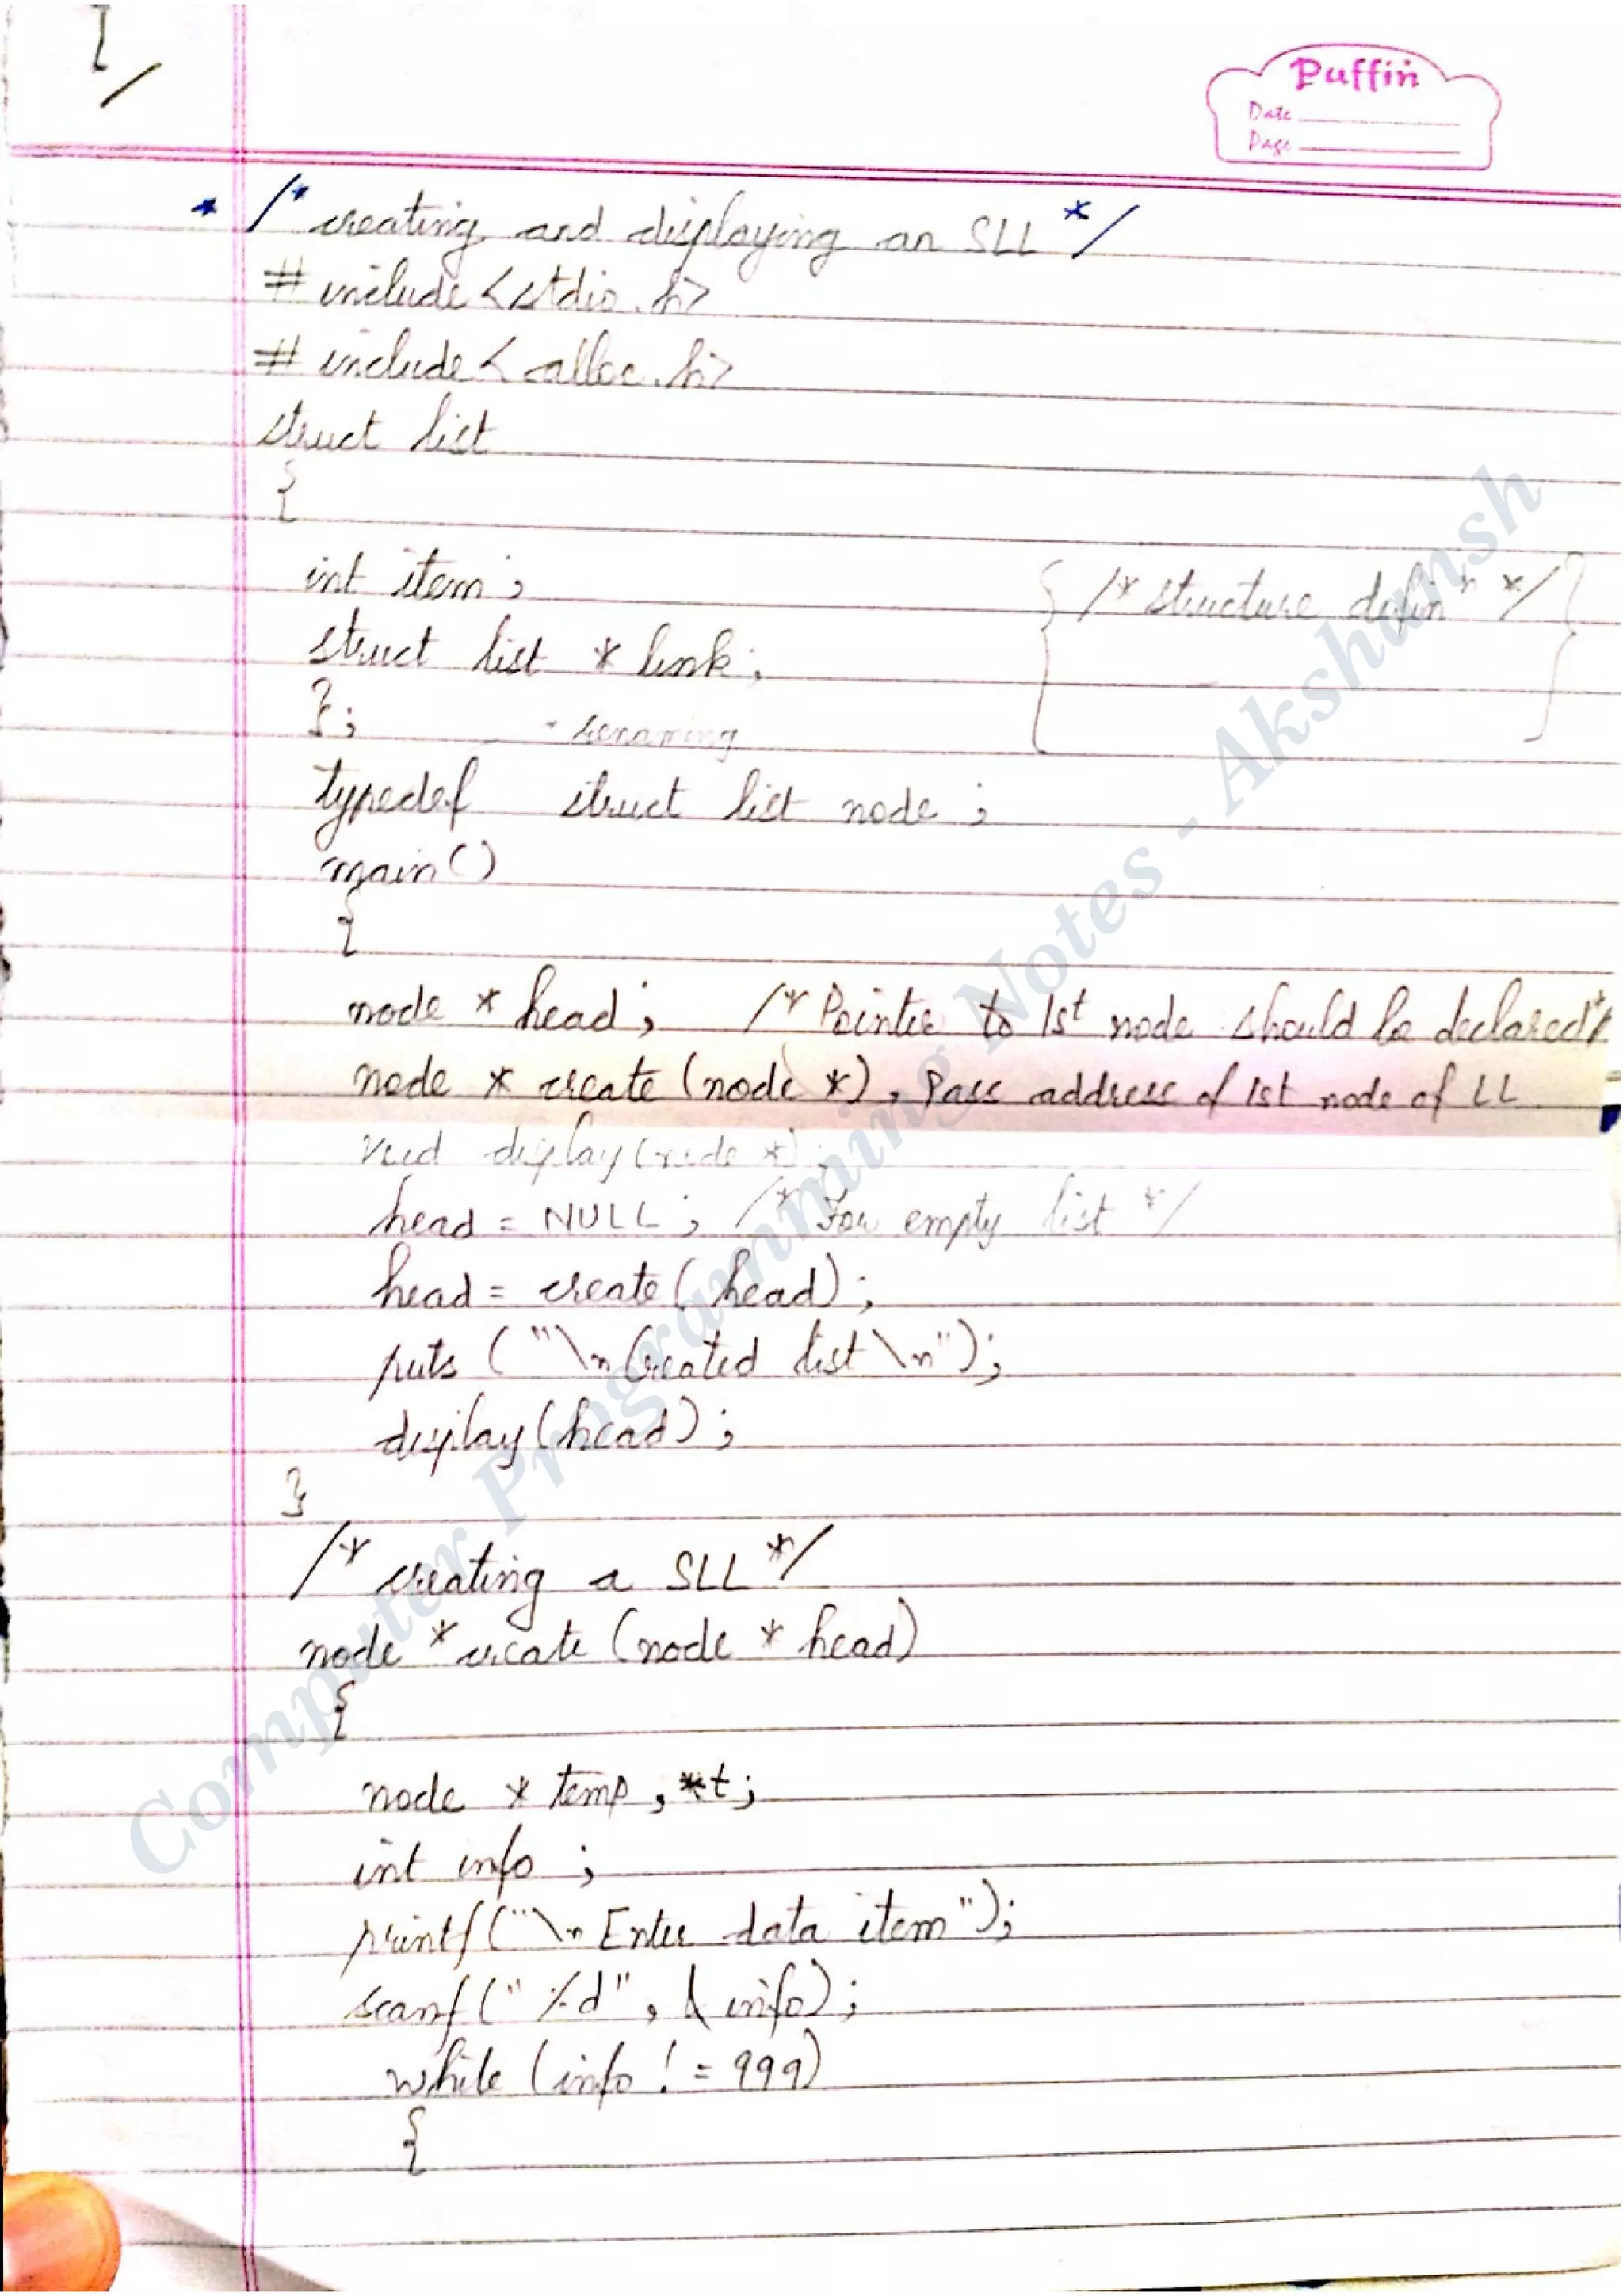 Puffin
Date
Page
* /* creating and displaying an SLL */
# include <stdio.h>
# include < alloc.h>
struct list
{
int item ;
/* structure defin^n */
struct list * link ;
} ;
- renaming
typedef struct list node ;
main()
{
node * head ; /* Pointer to 1st node should be declared */
node * create (node *) , Pass address of 1st node of LL
void display (node *) ;
head = NULL ; /* For empty list */
head = create ( head) ;
puts ( "\n Created list \n") ;
display (head) ;
}
/* creating a SLL */
node * create (node * head)
{
node * temp , *t ;
int info ;
printf ("\n Enter data item") ;
scanf (" %d" , & info) ;
while (info ! = 999)
{
Computer Programming Notes - Akshansh